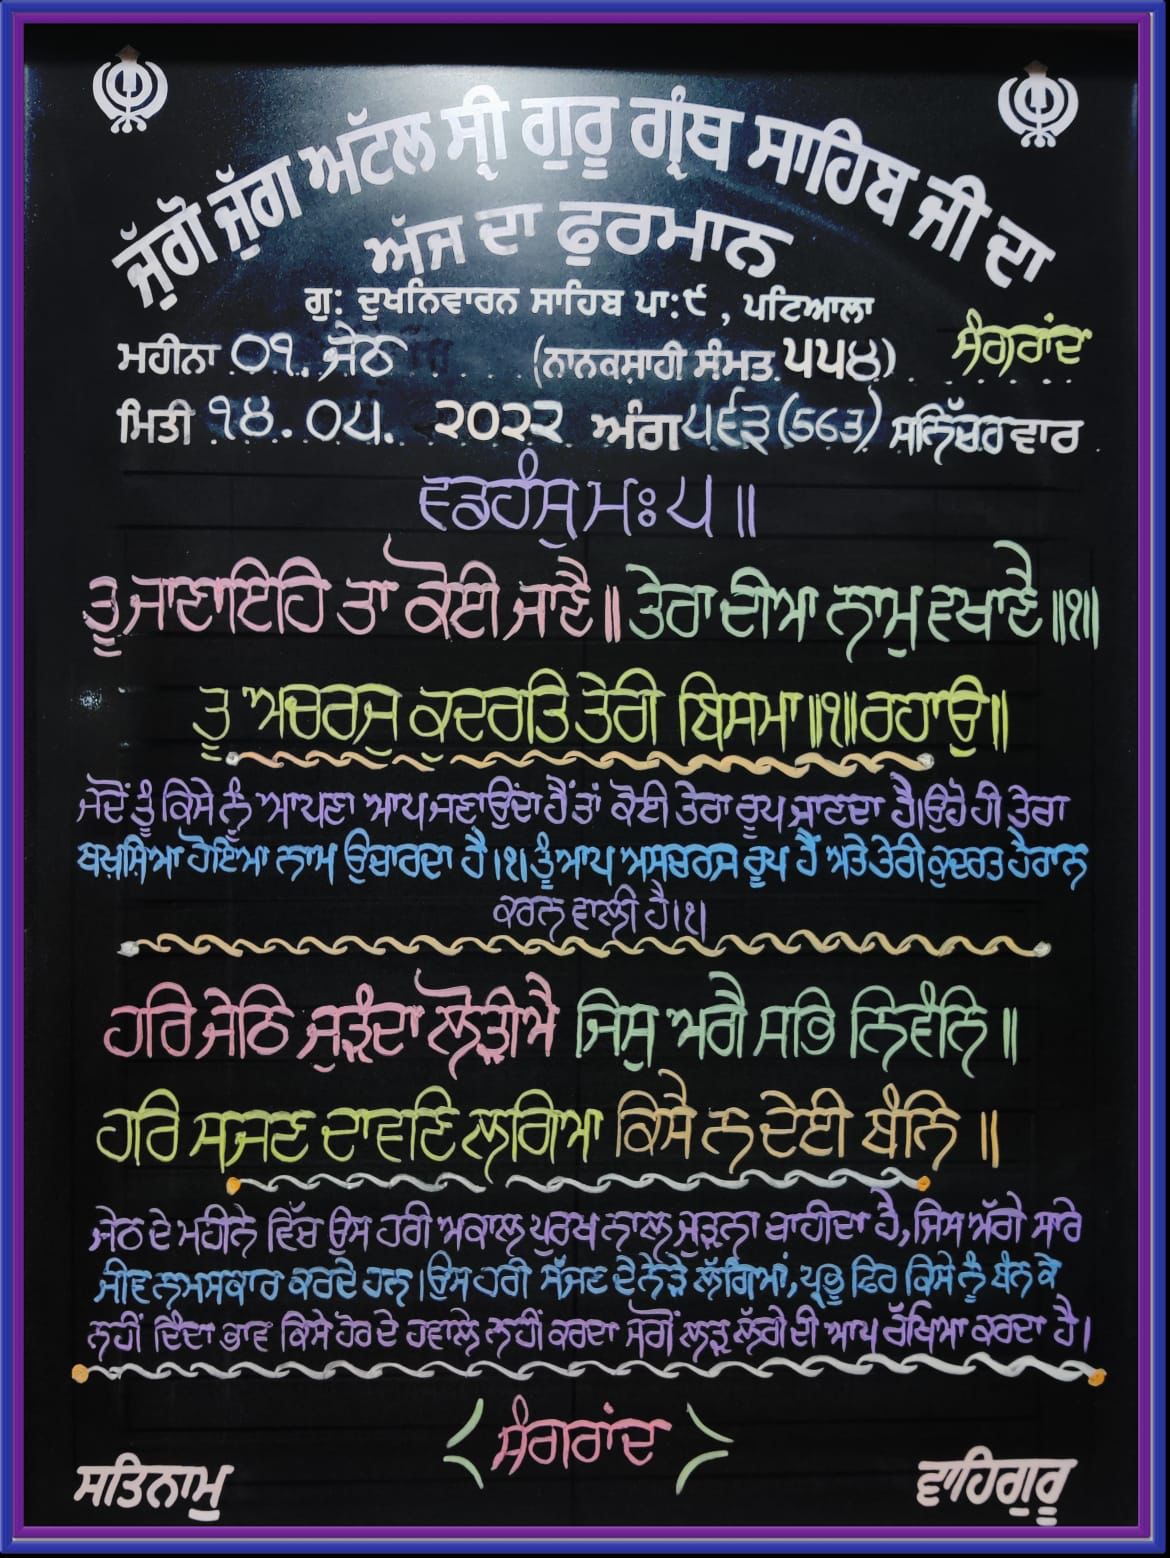 ਜੁੱਗੋ ਜੁੱਗ ਅੱਟਲ ਸ੍ਰੀ ਗੁਰੂ ਗ੍ਰੰਥ ਸਾਹਿਬ ਜੀ ਦਾ
ਅੱਜ ਦਾ ਫੁਰਮਾਨ
ਗੁ: ਦੁਖਨਿਵਾਰਨ ਸਾਹਿਬ ਪਾ:੯ , ਪਟਿਆਲਾ
ਸੰਗਰਾਂਦ
ਮਹੀਨਾ ੦੧. ਜੇਠ (ਨਾਨਕਸ਼ਾਹੀ ਸੰਮਤ ੫੫੪)
ਮਿਤੀ ੧੪. ੦੫. ੨੦੨੨ ਅੰਗ ੫੬੩ (563) ਸਨਿੱਚਰਵਾਰ
ਵਡਹੰਸੁ ਮਃ ੫ ॥
ਤੂ ਜਾਣਾਇਹਿ ਤਾ ਕੋਈ ਜਾਣੈ ॥ ਤੇਰਾ ਦੀਆ ਨਾਮੁ ਵਖਾਣੈ ॥੧॥
ਤੂ ਅਚਰਜੁ ਕੁਦਰਤਿ ਤੇਰੀ ਬਿਸਮਾ ॥੧॥ ਰਹਾਉ ॥
ਜਦੋਂ ਤੂੰ ਕਿਸੇ ਨੂੰ ਆਪਣਾ ਆਪ ਜਣਾਉਂਦਾ ਹੈਂ ਤਾਂ ਕੋਈ ਤੇਰਾ ਰੂਪ ਜਾਣਦਾ ਹੈ। ਉਹੋ ਹੀ ਤੇਰਾ
ਬਖ਼ਸ਼ਿਆ ਹੋਇਆ ਨਾਮ ਉਚਾਰਦਾ ਹੈ।੧। ਤੂੰ ਆਪ ਅਸਚਰਜ ਰੂਪ ਹੈਂ ਅਤੇ ਤੇਰੀ ਕੁਦਰਤ ਹੈਰਾਨ
ਕਰਨ ਵਾਲੀ ਹੈ।੧।
ਹਰਿ ਜੇਠਿ ਜੁੜੰਦਾ ਲੋੜੀਐ ਜਿਸੁ ਅਗੈ ਸਭਿ ਨਿਵੰਨਿ ॥
ਹਰਿ ਸਜਣ ਦਾਵਣਿ ਲਗਿਆ ਕਿਸੈ ਨ ਦੇਈ ਬੰਨਿ ॥
ਜੇਠ ਦੇ ਮਹੀਨੇ ਵਿੱਚ ਉਸ ਹਰੀ ਅਕਾਲ ਪੁਰਖ ਨਾਲ ਜੁੜਨਾ ਚਾਹੀਦਾ ਹੈ, ਜਿਸ ਅੱਗੇ ਸਾਰੇ
ਜੀਵ ਨਮਸਕਾਰ ਕਰਦੇ ਹਨ। ਉਸ ਹਰੀ ਸੱਜਣ ਦੇ ਨੇੜੇ ਲੱਗਿਆਂ, ਪ੍ਰਭੂ ਫਿਰ ਕਿਸੇ ਨੂੰ ਬੰਨ ਕੇ
ਨਹੀਂ ਦਿੰਦਾ ਭਾਵ ਕਿਸੇ ਹੋਰ ਦੇ ਹਵਾਲੇ ਨਹੀਂ ਕਰਦਾ ਸਗੋਂ ਲੜ ਲੱਗੇ ਦੀ ਆਪ ਰੱਖਿਆ ਕਰਦਾ ਹੈ।
ਸੰਗਰਾਂਦ
ਸਤਿਨਾਮੁ ਵਾਹਿਗੁਰੂ